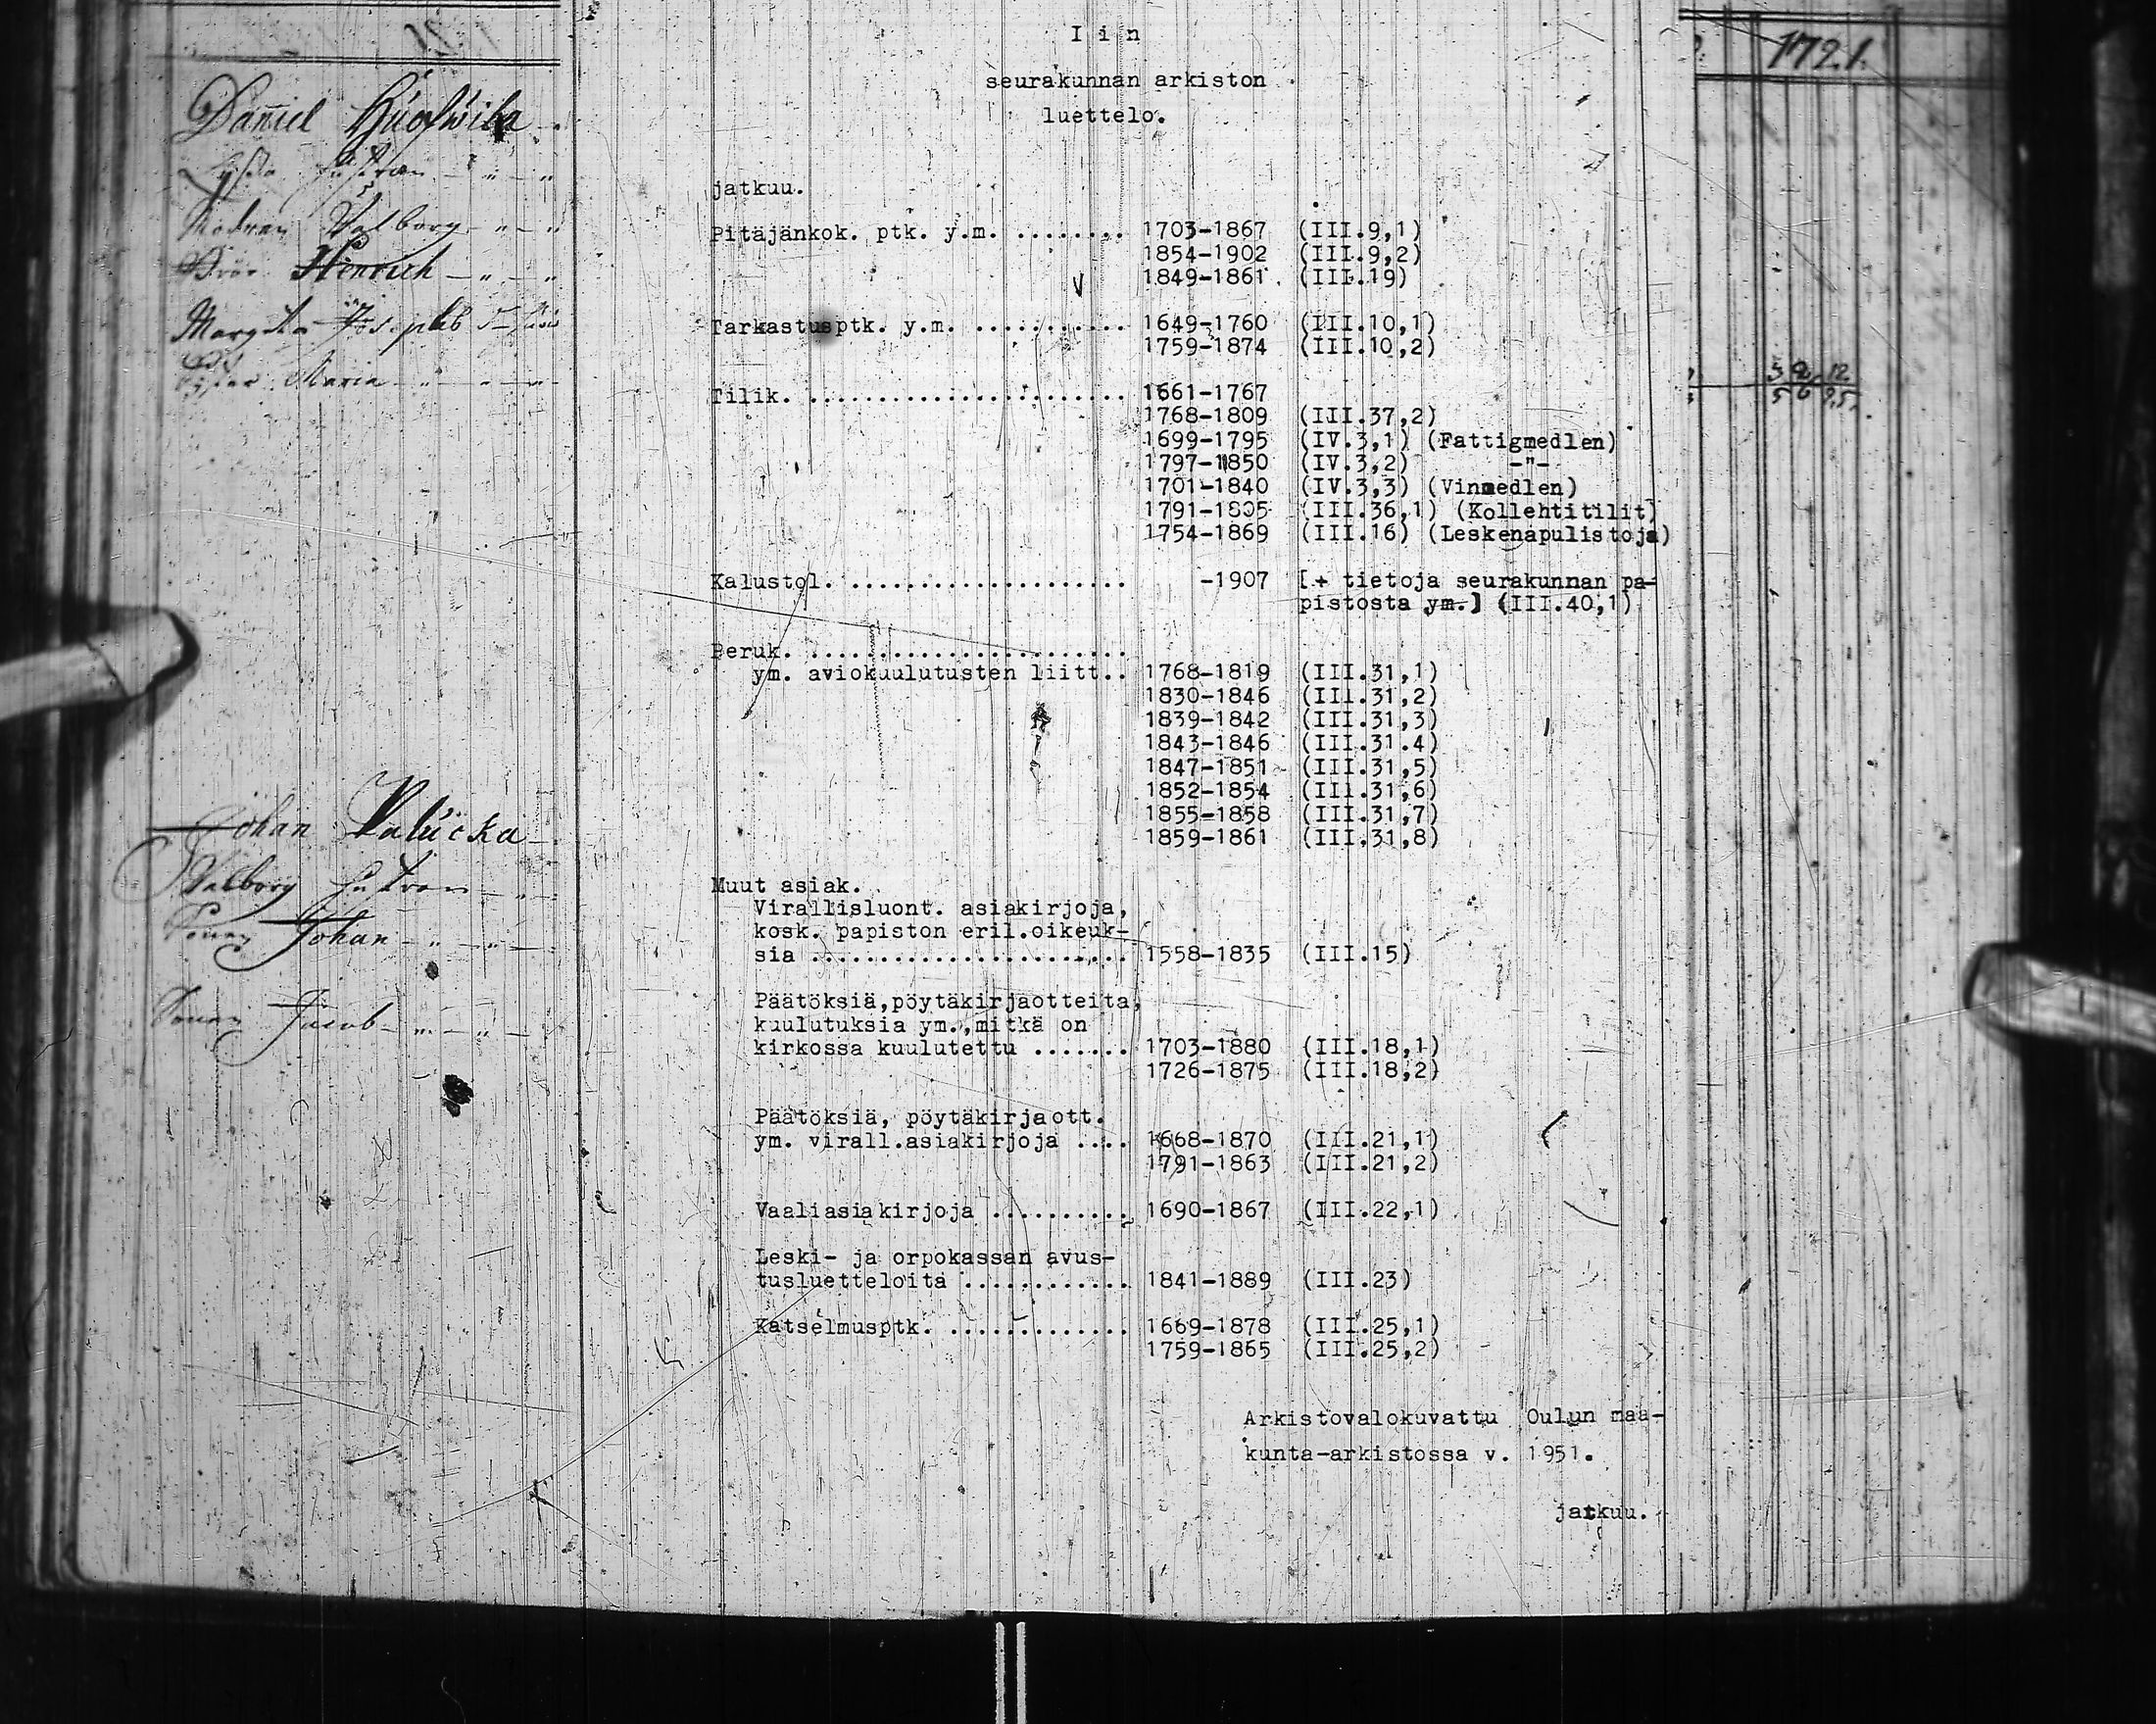 1721.
Daniel
Hustron
Modren Valborg
Bror Henrich
Margeta
Maria
5 9/6 12
Johan
Valborg Hustron
Sonen Johan
Sonen Jacob
I i n
seurakunnan arkiston
luettelo.
jatkuu.
Pitäjänkok. ptk. y.m. ........ 1703-1867 (III.9,1)
1854-1902 (III.9,2)
1849-1861 (III.19)
Tarkastusptk. y.m. ........... 1649-1760 (III.10,1)
1759-1874 (III.10,2)
Tilik. ....................... 1661-1767
1768-1809 (III.37,2)
1699-1795 (IV.3,1) (Fattigmedlen)
1797-1850 (IV.3,2) -"-
1701-1840 (IV.3,3) (Vinmedlen)
1791-1805 (III.36,1) (Kollehtitilit)
1754-1869 (III.16) (Leskenapulistoja)
Kalustol. .................... -1907 [+ tietoja seurakunnan pa-
pistosta ym.] (III.40,1)
Peruk. .......................
ym. aviokuulutusten liitt.. 1768-1819 (III.31,1)
1830-1846 (III.31,2)
1839-1842 (III.31,3)
1843-1846 (III.31.4)
1847-1851 (III.31,5)
1852-1854 (III.31,6)
1855-1858 (III.31,7)
1859-1861 (III.31,8)
Muut asiak.
Virallisluont. asiakirjoja,
kosk. papiston eril.oikeuk-
sia ....................... 1558-1835 (III.15)
Päätöksiä,pöytäkirjaotteita,
kuulutuksia ym.,mitkä on
kirkossa kuulutettu ....... 1703-1880 (III.18,1)
1726-1875 (III.18,2)
Päätöksiä, pöytäkirjaott.
ym. virall.asiakirjoja .... 1668-1870 (III.21,1)
1791-1863 (III.21,2)
Vaaliasiakirjoja .......... 1690-1867 (III.22,1)
Leski- ja orpokassan avus-
tusluetteloita ............ 1841-1889 (III.23)
Katselmusptk. ............. 1669-1878 (III.25,1)
1759-1865 (III.25,2)
Arkistovalokuvattu Oulun maa-
kunta-arkistossa v. 1951.
jatkuu.